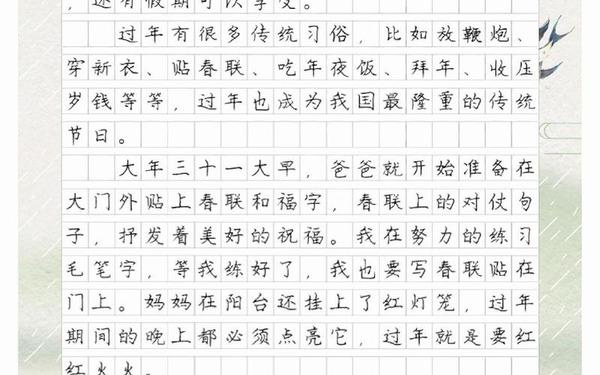 ，还有假期可以享受。
过年有很多传统习俗，比如放鞭炮、
穿新衣、贴春联、吃年夜饭、拜年、收压
岁钱等等，过年也成为我国最隆重的传统
节日。
大年三十一大早，爸爸就开始准备在
大门外贴上春联和福字，春联上的对仗句
子，抒发着美好的祝福。我在努力的练习
毛笔字，等我练好了，我也要写春联贴在
门上。妈妈在阳台还挂上了红灯笼，过年
期间的晚上都必须点亮它，过年就是要红
红火火。